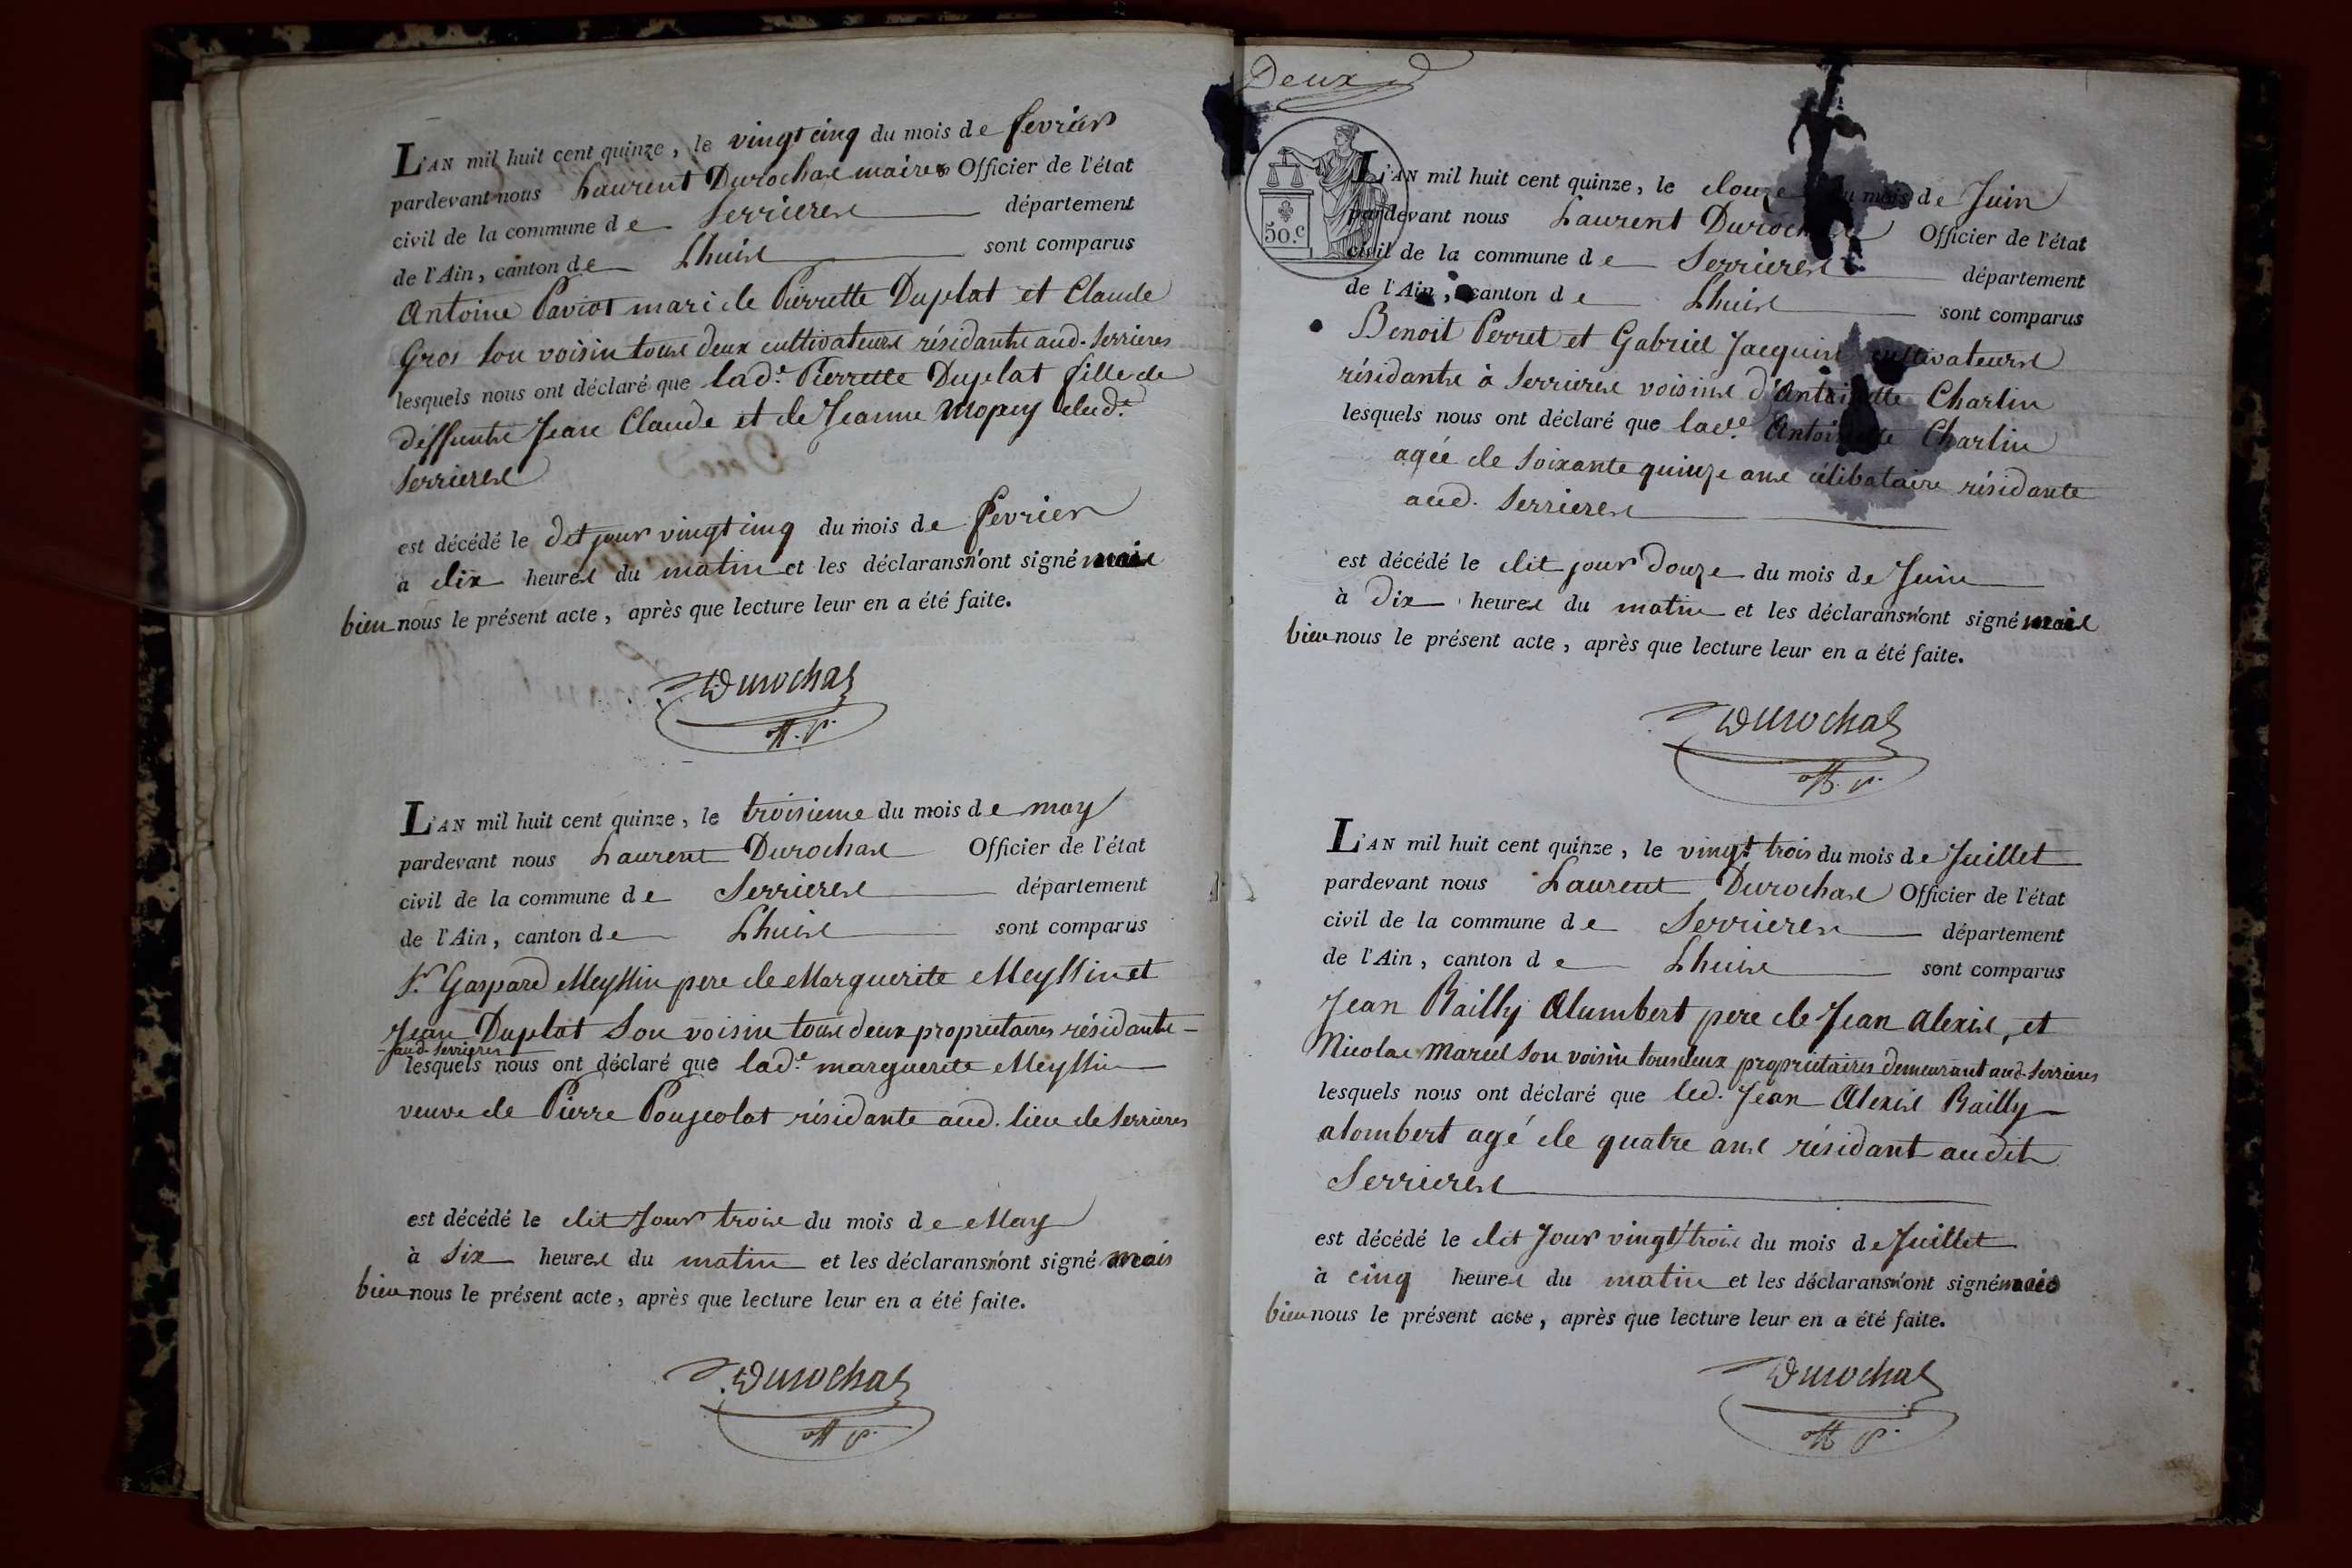 L'AN mil huit cent quinze, le vingt cinq du mois de fevrier
pardevant nous Laurent Durochas maire Officier de l'état
civil de la commune de Serrieres département
de l'Ain, canton de Lhuis sont comparus
Antoine Paviot mari de Pierrette Duplat et Claude
Gros son voisin tous deux cultivateurs résidants aud. Serrieres
lesquels nous ont déclaré que lad.e Pierrette Duplat fille de
deffunts Jean Claude et de Jeanne Mopey dud.t
Serrieres
est décédé le dit jour vingt cinq du mois de fevrier
à dix heures du matin et les déclarans n'ont signé mais
bien nous le présent acte, après que lecture leur en a été faite.
Durochas
L'AN mil huit cent quinze, le troisieme du mois de may
pardevant nous Laurent Durochas Officier de l'état
civil de la commune de Serrieres département
de l'Ain, canton de Lhuis sont comparus
Sr. Gaspard Meyssin pere de Marguerite Meyssin et
Jean Duplat son voisin tous deux proprietaires résidants
aud. Serrieres
lesquels nous ont déclaré que lad.e marguerite Meyssin
veuve de Pierre Poujeolat résidante aud. lieu de Serrieres
est décédé le dit Jour trois du mois de May
à six heures du matin et les déclarans n'ont signé mais
bien nous le présent acte, après que lecture leur en a été faite.
Durochas
Deux
50.c
L'AN mil huit cent quinze, le douze du mois de Juin
pardevant nous Laurent Durochas Officier de l'état
civil de la commune de Serrieres département
de l'Ain, canton de Lhuis sont comparus
Benoit Perret et Gabriel Jacquin cultivateurs
résidants à Serrieres voisins d'Antoinette Charlin
lesquels nous ont déclaré que lad.e Antoinette Charlin
agée de soixante quinze ans célibataire résidante
aud. Serrieres
est décédé le dit jour Douze du mois de Juin
à Dix heures du matin et les déclarans n'ont signé mais
bien nous le présent acte, après que lecture leur en a été faite.
Durochas
L'AN mil huit cent quinze, le vingt trois du mois de Juillet
pardevant nous Laurent Durochas Officier de l'état
civil de la commune de Serrieres département
de l'Ain, canton de Lhuis sont comparus
Jean Bailly Alumbert pere de Jean Alexis, et
Nicolas Marcel son voisin tous deux proprietaires demeurant aud. Serrieres
lesquels nous ont déclaré que led. Jean Alexis Bailly
alombert agé de quatre ans résidant audit
Serrieres
est décédé le dit Jour vingt trois du mois de Juillet
à cinq heures du matin et les déclarans n'ont signé mais
bien nous le présent acte, après que lecture leur en a été faite.
Durochas